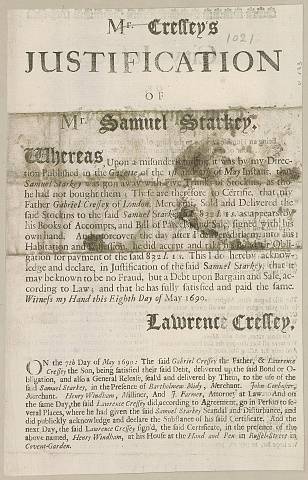 Mr. Cressey's
1021
JUSTIFICATION
OF
Mr. Samuel Starkey.
Whereas Upon a misunderstanding it was by my Direc-
tion Published in the Gazette of the of May Instant, that
Samuel Starkey was gon away with five Trunks of Stockins, as tho
he had not bought them; These are therefore to Certifie, that my
Father Gabriel Cressey of London, Merchant, Sold and Delivered the
said Stockins to the said Samuel Starkey for 832 l. 1 s. as appears by
his Books of Accompts, and Bill of Parcels of Sale, signed with his
own hand. And moreover, the day after I had written into his
Habitation and Possession, he did accept and take his Bond or Obli-
gation for payment of the said 832 l. 1 s. This I do hereby acknow-
ledge and declare, in Justification of the said Samuel Starkey, that it
may be known to be no Fraud, but a Debt upon Bargain and Sale, ac-
cording to Law; and that he has fully satisfied and paid the same.
Witness my Hand this Eighth Day of May 1690.
Lawrence Cressey.
ON the 7th Day of May 1690: The said Gabriel Cressey the Father, & Lawrence
Cressey the Son, being satisfied their said Debt, delivered up the said Bond or O-
bligation, and also a General Release, seal'd and delivered by them, to the use of the
said Samuel Starkey, in the Presence of Bartholmew Bludy, Merchant. John
Merchant. Henry Windham, Milliner, And J. Farmer, Attorney at Law. And on
the same Day, the said Lawrence Cressey did, according to Agreement, go in Person to se-
veral Places, where he had given the said Samuel Starkey Scandal and Disturbance, and
did publickly acknowledge and declare the Substance of his said Certificate. And the
next Day, the said Lawrence Cressey sign'd, the said Certificate, in the presence of the
above named, Henry Windham, at his House at the Hand and Pen in Russel-Street in
Coven-Garden.